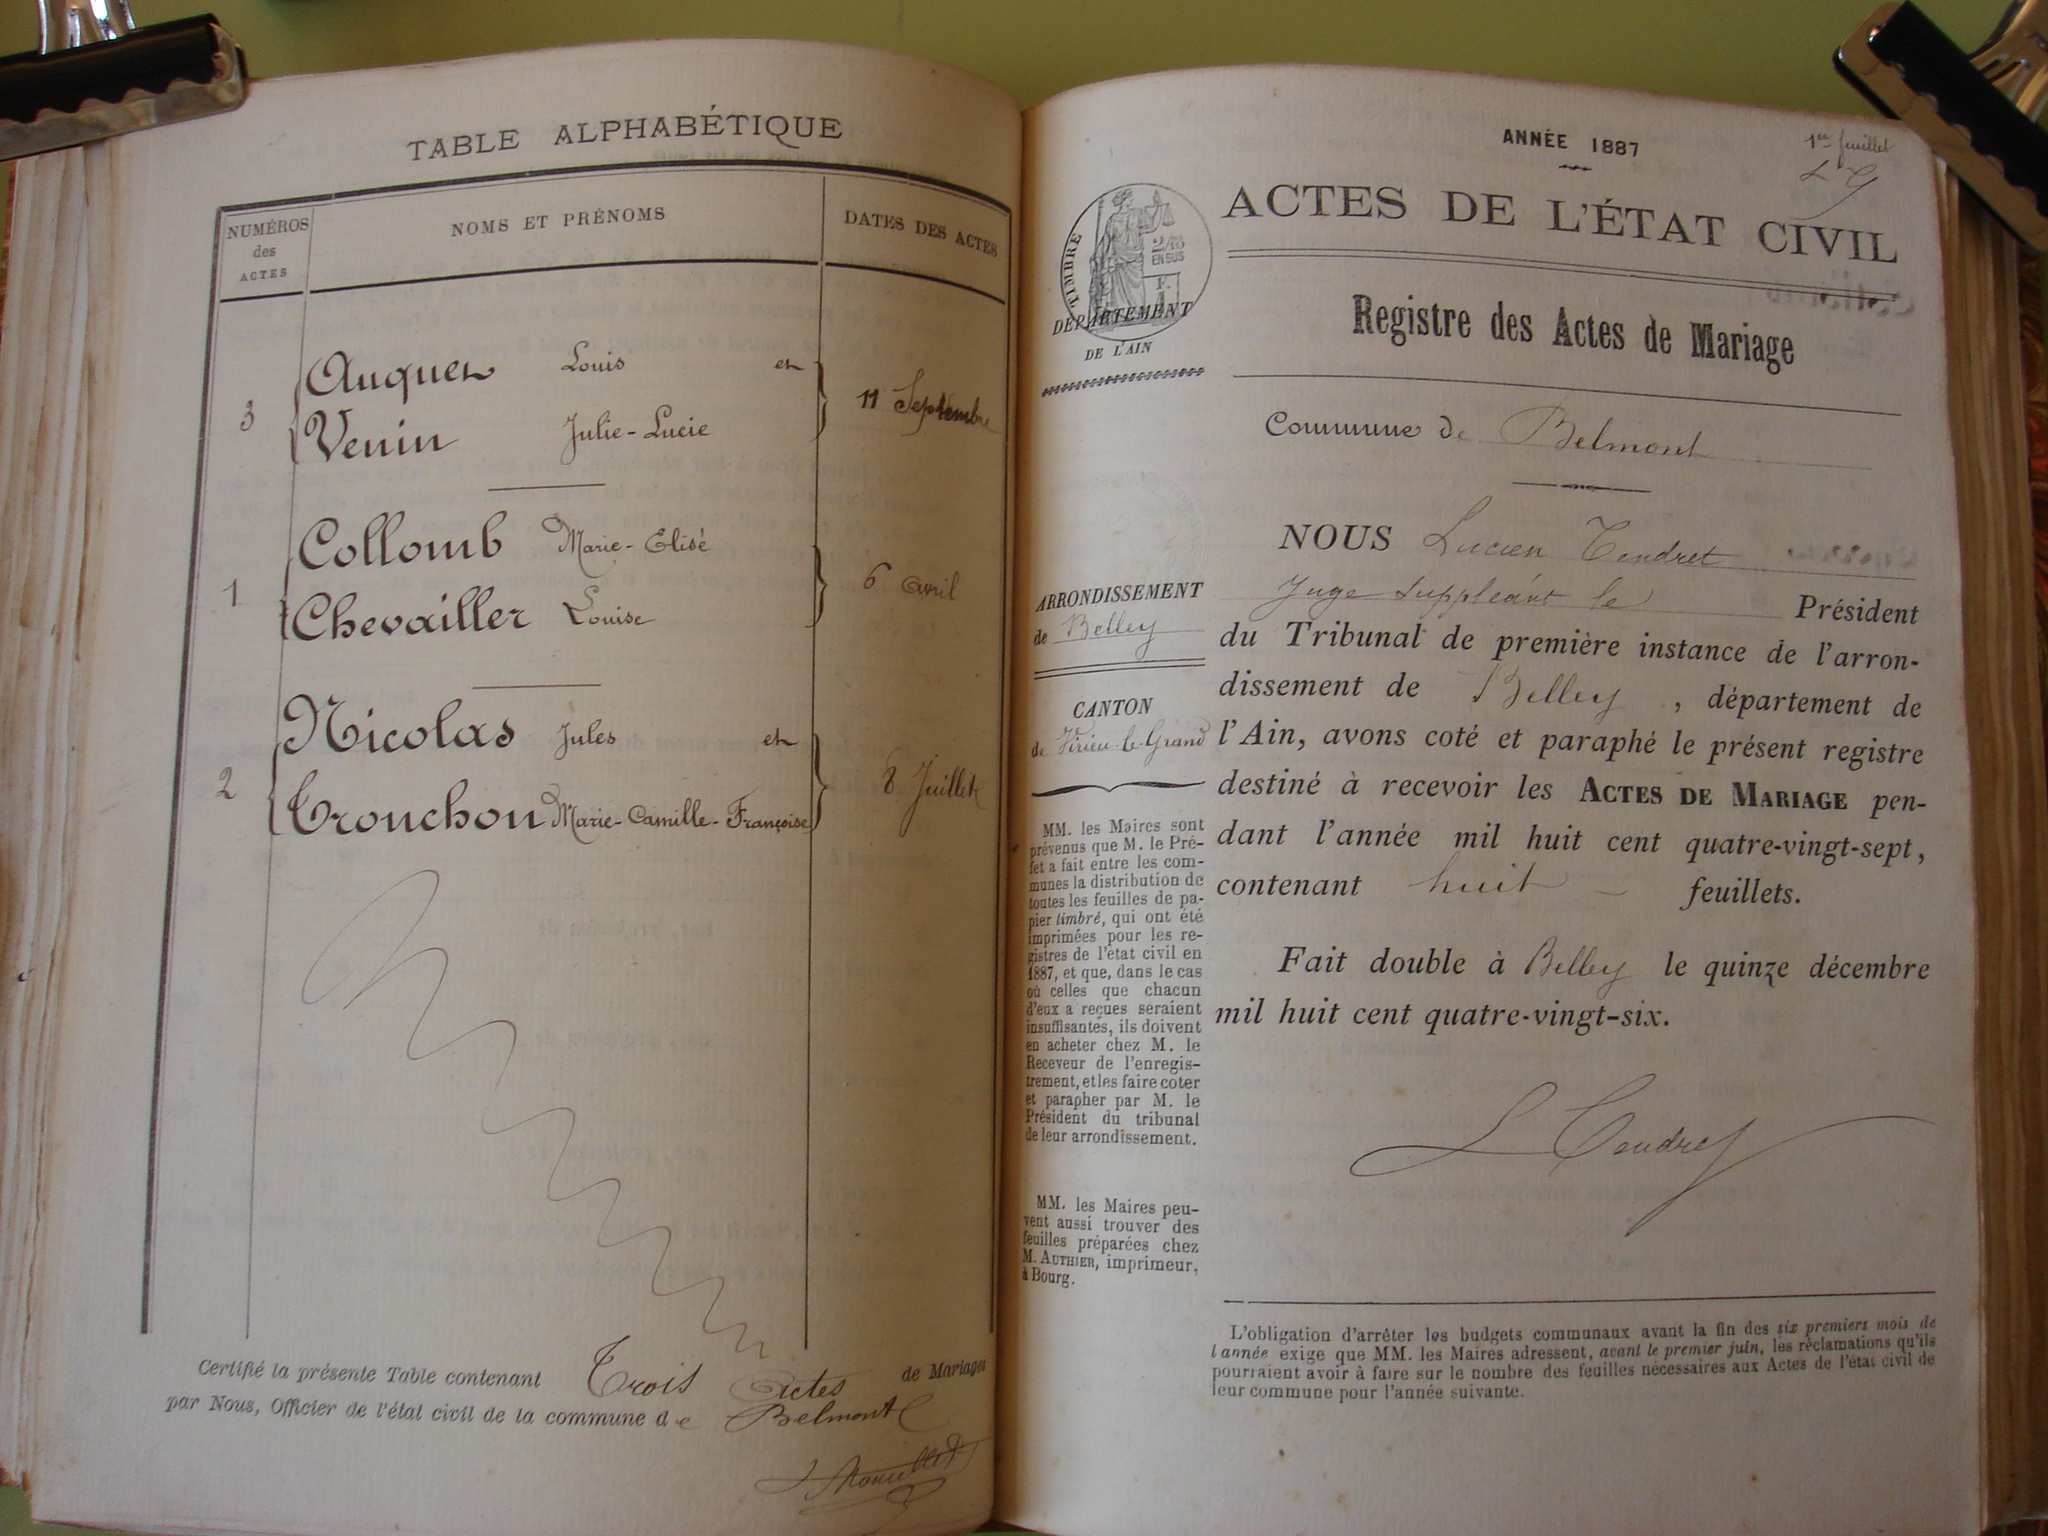 TABLE ALPHABÉTIQUE
NUMÉROS des ACTES
NOMS ET PRÉNOMS
DATES DES ACTES
3
Auquer Louis et
Venin Julie-Lucie
11 Septembre
1
Collomb Marie-Elisé
Chevailler Louise
6 avril
2
Nicolas Jules et
Tronchon Marie-Camille-Françoise
8 Juillet
Certifié la présente Table contenant Trois Actes de Mariages
par Nous, Officier de l'état civil de la commune de Belmont
ANNÉE 1887
1er feuillet
ACTES DE L'ÉTAT CIVIL
TIMBRE
2/10 EN SUS
DÉPARTEMENT
DE L'AIN
Registre des Actes de Mariage
Commune de Belmont
ARRONDISSEMENT
de Belley
CANTON
de Virieu-le-Grand
MM. les Maires sont
prévenus que M. le Pré-
fet a fait entre les com-
munes la distribution de
toutes les feuilles de pa-
pier timbré, qui ont été
imprimées pour les re-
gistres de l'état civil en
1887, et que, dans le cas
où celles que chacun
d'eux a reçues seraient
insuffisantes, ils doivent
en acheter chez M. le
Receveur de l'enregis-
trement, et les faire coter
et parapher par M. le
Président du tribunal
de leur arrondissement.
MM. les Maires peu-
vent aussi trouver des
feuilles préparées chez
M. AUTHIER, imprimeur,
à Bourg.
NOUS Lucien Tendret
Juge Suppléant le Président
du Tribunal de première instance de l'arron-
dissement de Belley, département de
l'Ain, avons coté et paraphé le présent registre
destiné à recevoir les ACTES DE MARIAGE pen-
dant l'année mil huit cent quatre-vingt-sept,
contenant huit feuillets.
Fait double à Belley le quinze décembre
mil huit cent quatre-vingt-six.
L Tendret
L'obligation d'arrêter les budgets communaux avant la fin des six premiers mois de
l'année exige que MM. les Maires adressent, avant le premier juin, les réclamations qu'ils
pourraient avoir à faire sur le nombre des feuilles nécessaires aux Actes de l'état civil de
leur commune pour l'année suivante.